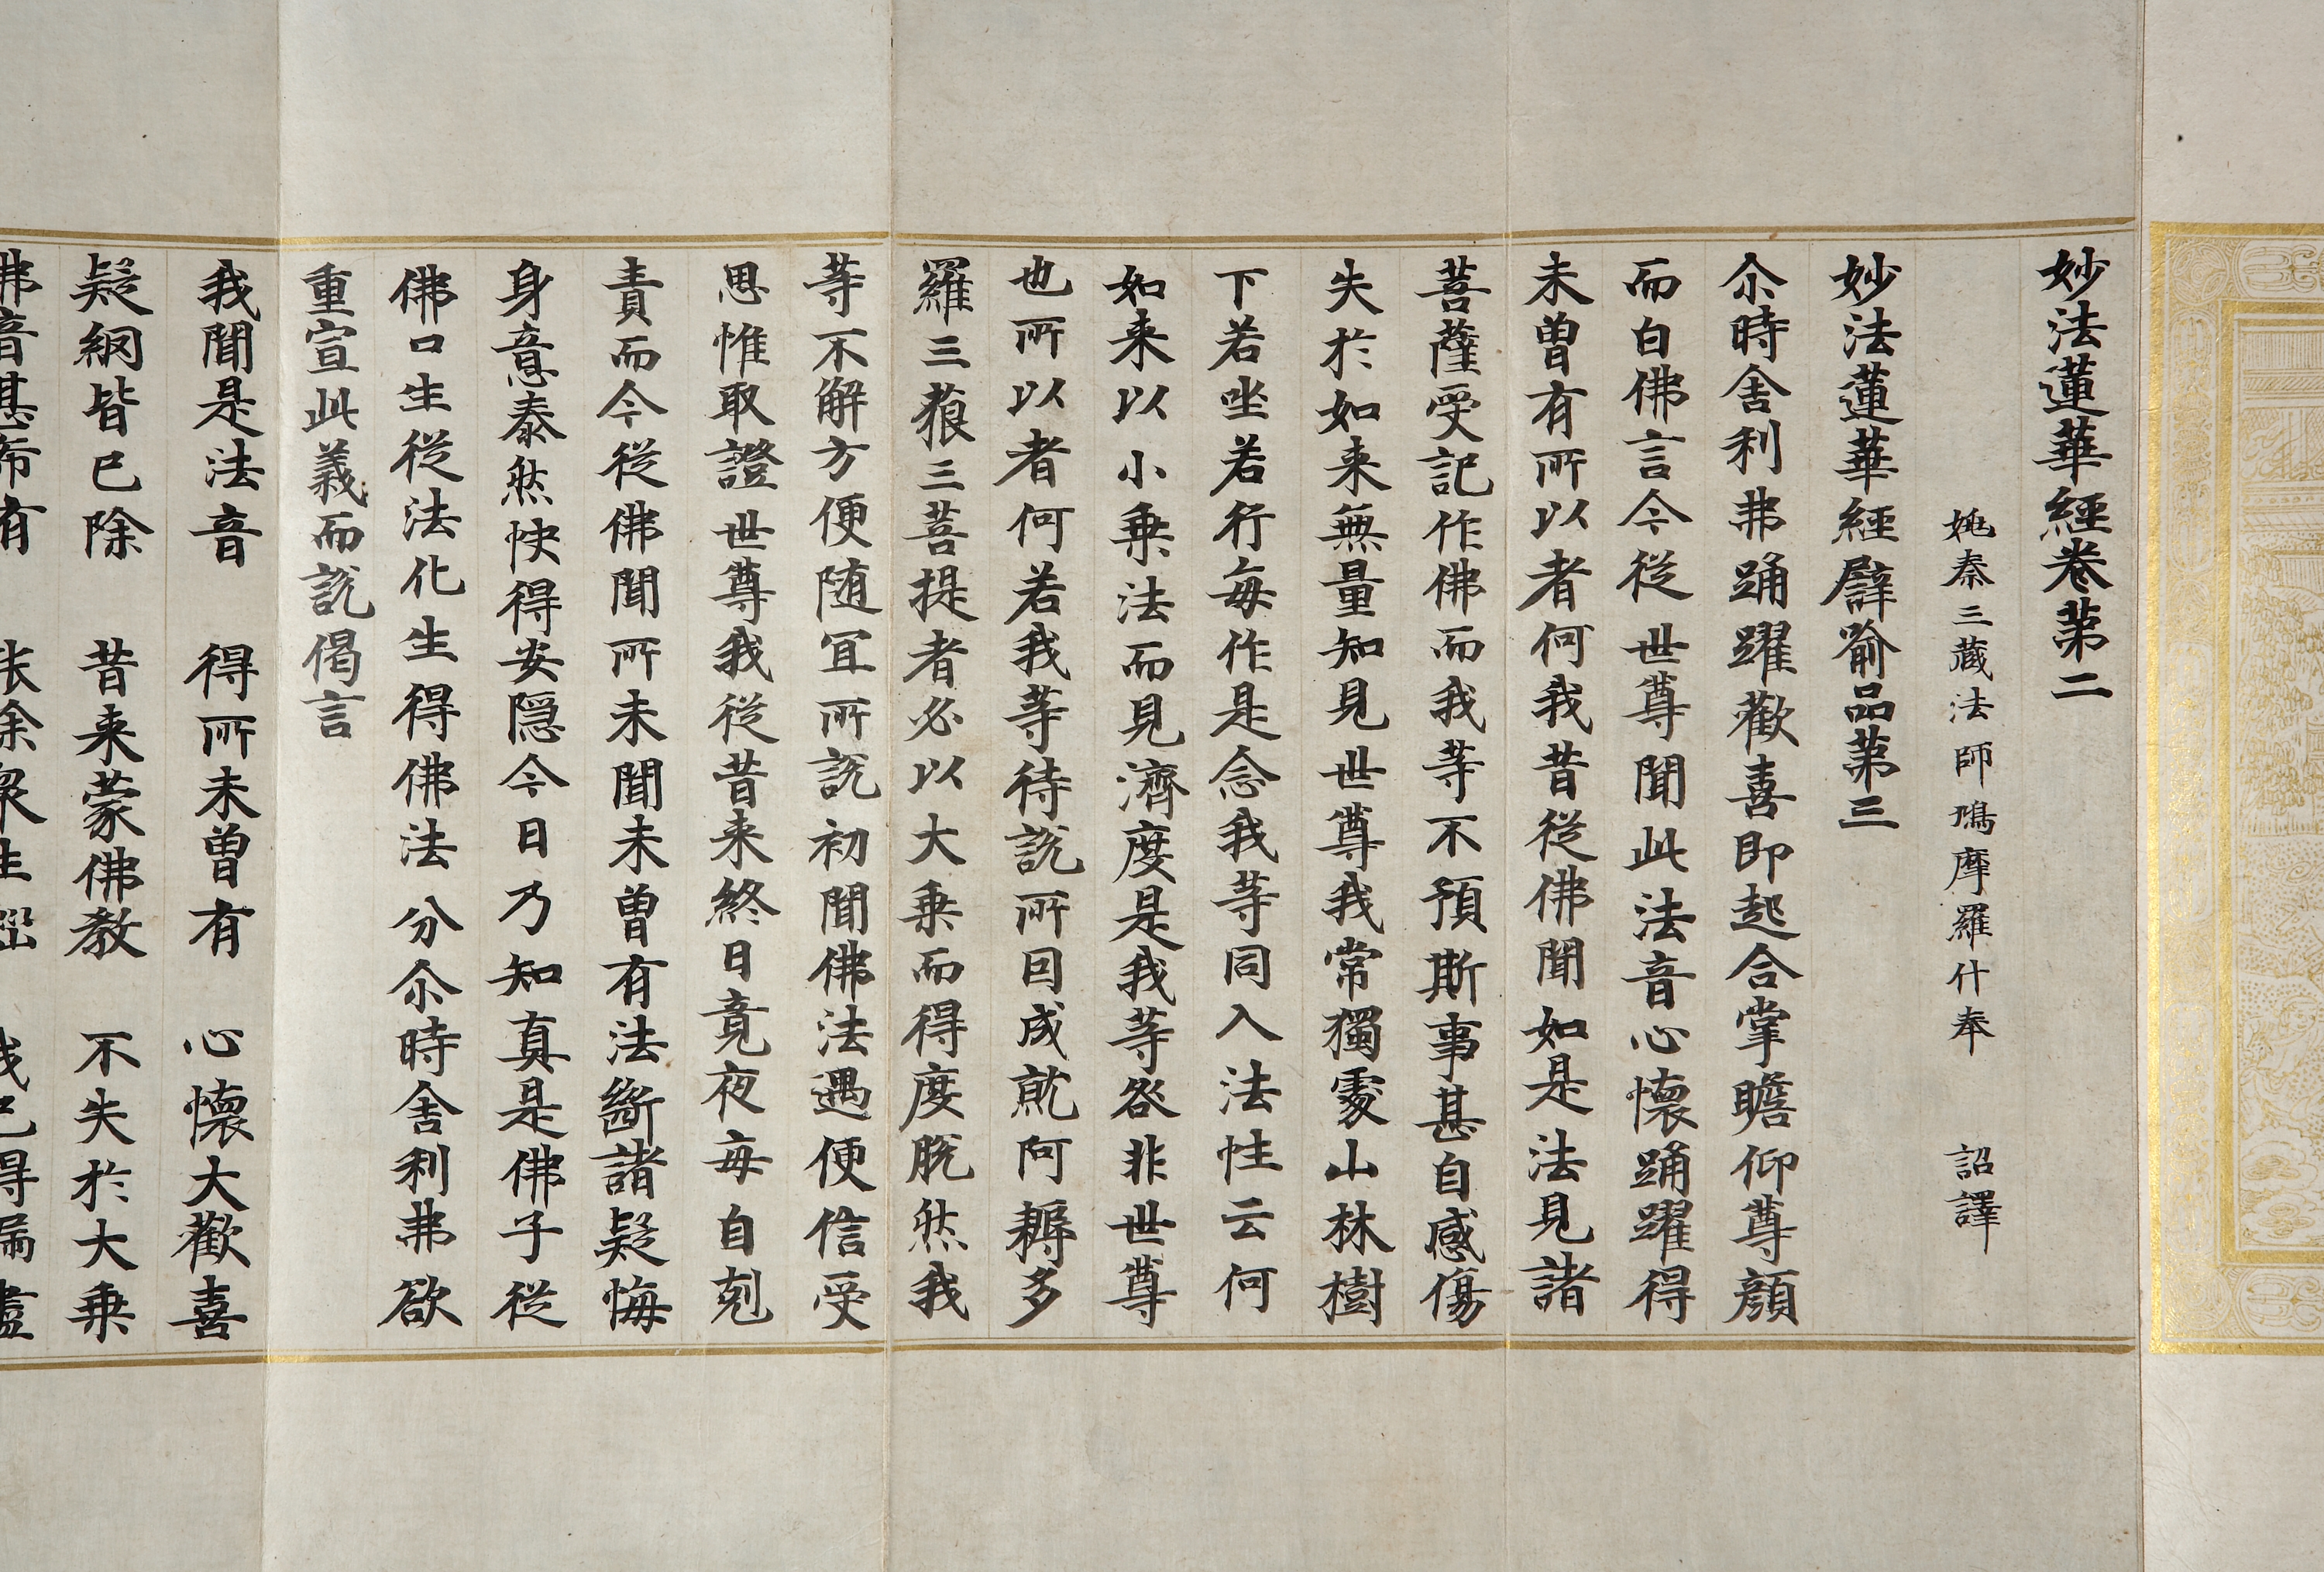 妙法蓮華經卷第二
姚秦三藏法師鳩摩羅什奉 詔譯
妙法蓮華經譬喻品第三
尒時舍利弗踊躍歡喜即起合掌瞻仰尊顔
而白佛言今從世尊聞此法音心懷踊躍得
未曾有所以者何我昔從佛聞如是法見諸
菩薩受記作佛而我等不預斯事甚自感傷
失於如来無量知見世尊我常獨處山林樹
下若坐若行每作是念我等同入法性云何
如来以小乗法而見濟度是我等咎非世尊
也所以者何若我等待說所因成就阿耨多
羅三藐三菩提者必以大乗而得度脫然我
等不解方便随冝所說初聞佛法遇便信受
思惟取證世尊我從昔来終日竟夜每自剋
責而今從佛聞所未聞未曾有法斷諸疑悔
身意泰然快得安隱今日乃知真是佛子從
佛口生從法化生得佛法分尒時舍利弗欲
重宣此義而說偈言
我聞是法音 得所未曾有 心懷大歡喜
疑網皆已除 昔来蒙佛教 不失於大乗
佛音甚希有 能除衆生惱 我已得漏盡